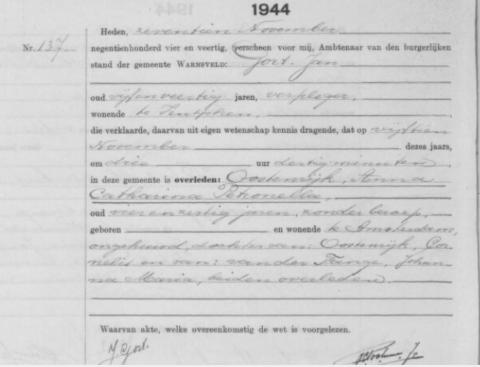 1944
Heden, zeventien November
Nr. 137
negentienhonderd vier en veertig, verscheen voor mij, Ambtenaar van den burgerlijken
stand der gemeente WARNSVELD: Jort, Jan
oud vijfenveertig jaren, verpleger,
wonende te Zutphen,
die verklaarde, daarvan uit eigen wetenschap kennis dragende, dat op vijftien
November dezes jaars,
om drie uur dertig minuten
in deze gemeente is overleden: Oostenrijk, Anna
Catharina Petronella,
oud vierenzestig jaren, zonder beroep,
geboren en wonende te Amsterdam,
ongehuwd, dochter van: Oostenrijk, Cor-
nelis en van: van der Johan-
na Maria, beiden overleden.
Waarvan akte, welke overeenkomstig de wet is voorgelezen.
J. Jort.